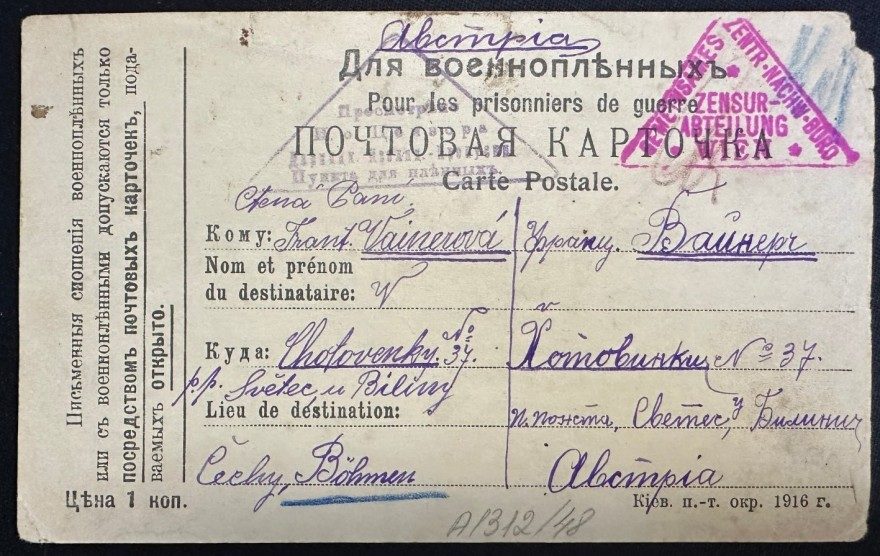 Австрія
Для военноплѣнныхъ
Pour les prisonniers de guerre
ПОЧТОВАЯ КАРТОЧКА
Carte Postale.
ZENTR·NACHW·BÜRO
ZENSUR-
ABTEILUNG
Пункта для плѣнныхъ.
Ctená Paní,
Кому: Frant. Vainerová
Nom et prénom
du destinataire: V
Куда: Chotovenky. No 37.
p.p. Světec, u Bíliny
Lieu de déstination:
Čechy, Böhmen
Франц. Вайнерч
в
Хотовинки, No 37.
п. пожта, Светес, у Билинич
Австріа
Цѣна 1 коп.
Кіев. п.-т. окр. 1916 г.
A/312/48
Письменныя сношенія военноплѣнныхъ
или съ военноплѣнными допускаются только
посредствомъ почтовыхъ карточекъ, пода-
ваемыхъ открыто.